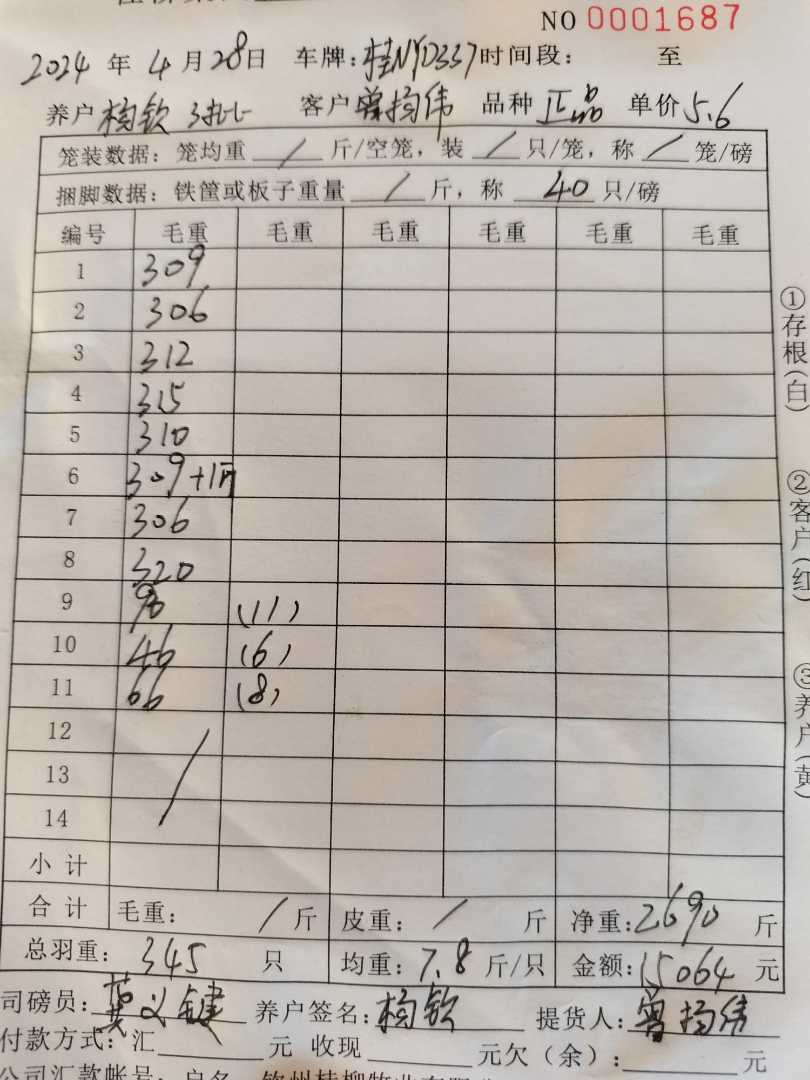 NO 0001687
2024 年 4 月 28 日 车牌: 桂NYD337 时间段: 至
养户 杨钦 3批 客户 曾扬伟 品种 正品 单价 5.6
笼装数据: 笼均重 / 斤/空笼, 装 / 只/笼, 称 / 笼/磅
捆脚数据: 铁筐或板子重量 / 斤, 称 40 只/磅
编号 毛重 毛重 毛重 毛重 毛重 毛重
1 309
2 306
3 312
4 315
5 310
6 309+1
7 306
8 320
9 (11)
10 46 (6)
11 66 (8)
12
13 /
14
小计
合计 毛重: / 斤 皮重: / 斤 净重: 2690 斤
总羽重: 345 只 均重: 7.8 斤/只 金额: 15064 元
司磅员: 莫义键 养户签名: 杨钦 提货人: 曾扬伟
付款方式: 汇 元 收现 元欠(余): 元
公司汇款帐号: 户名
①存根(白)
②客户(红)
③养户(黄)